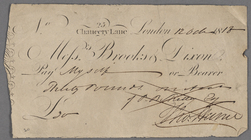 No 25
Chancery Lane, London 12 Octr 1818
Messrs Brooks & Dixon
Pay Myself or Bearer
Thirty Pounds
£30